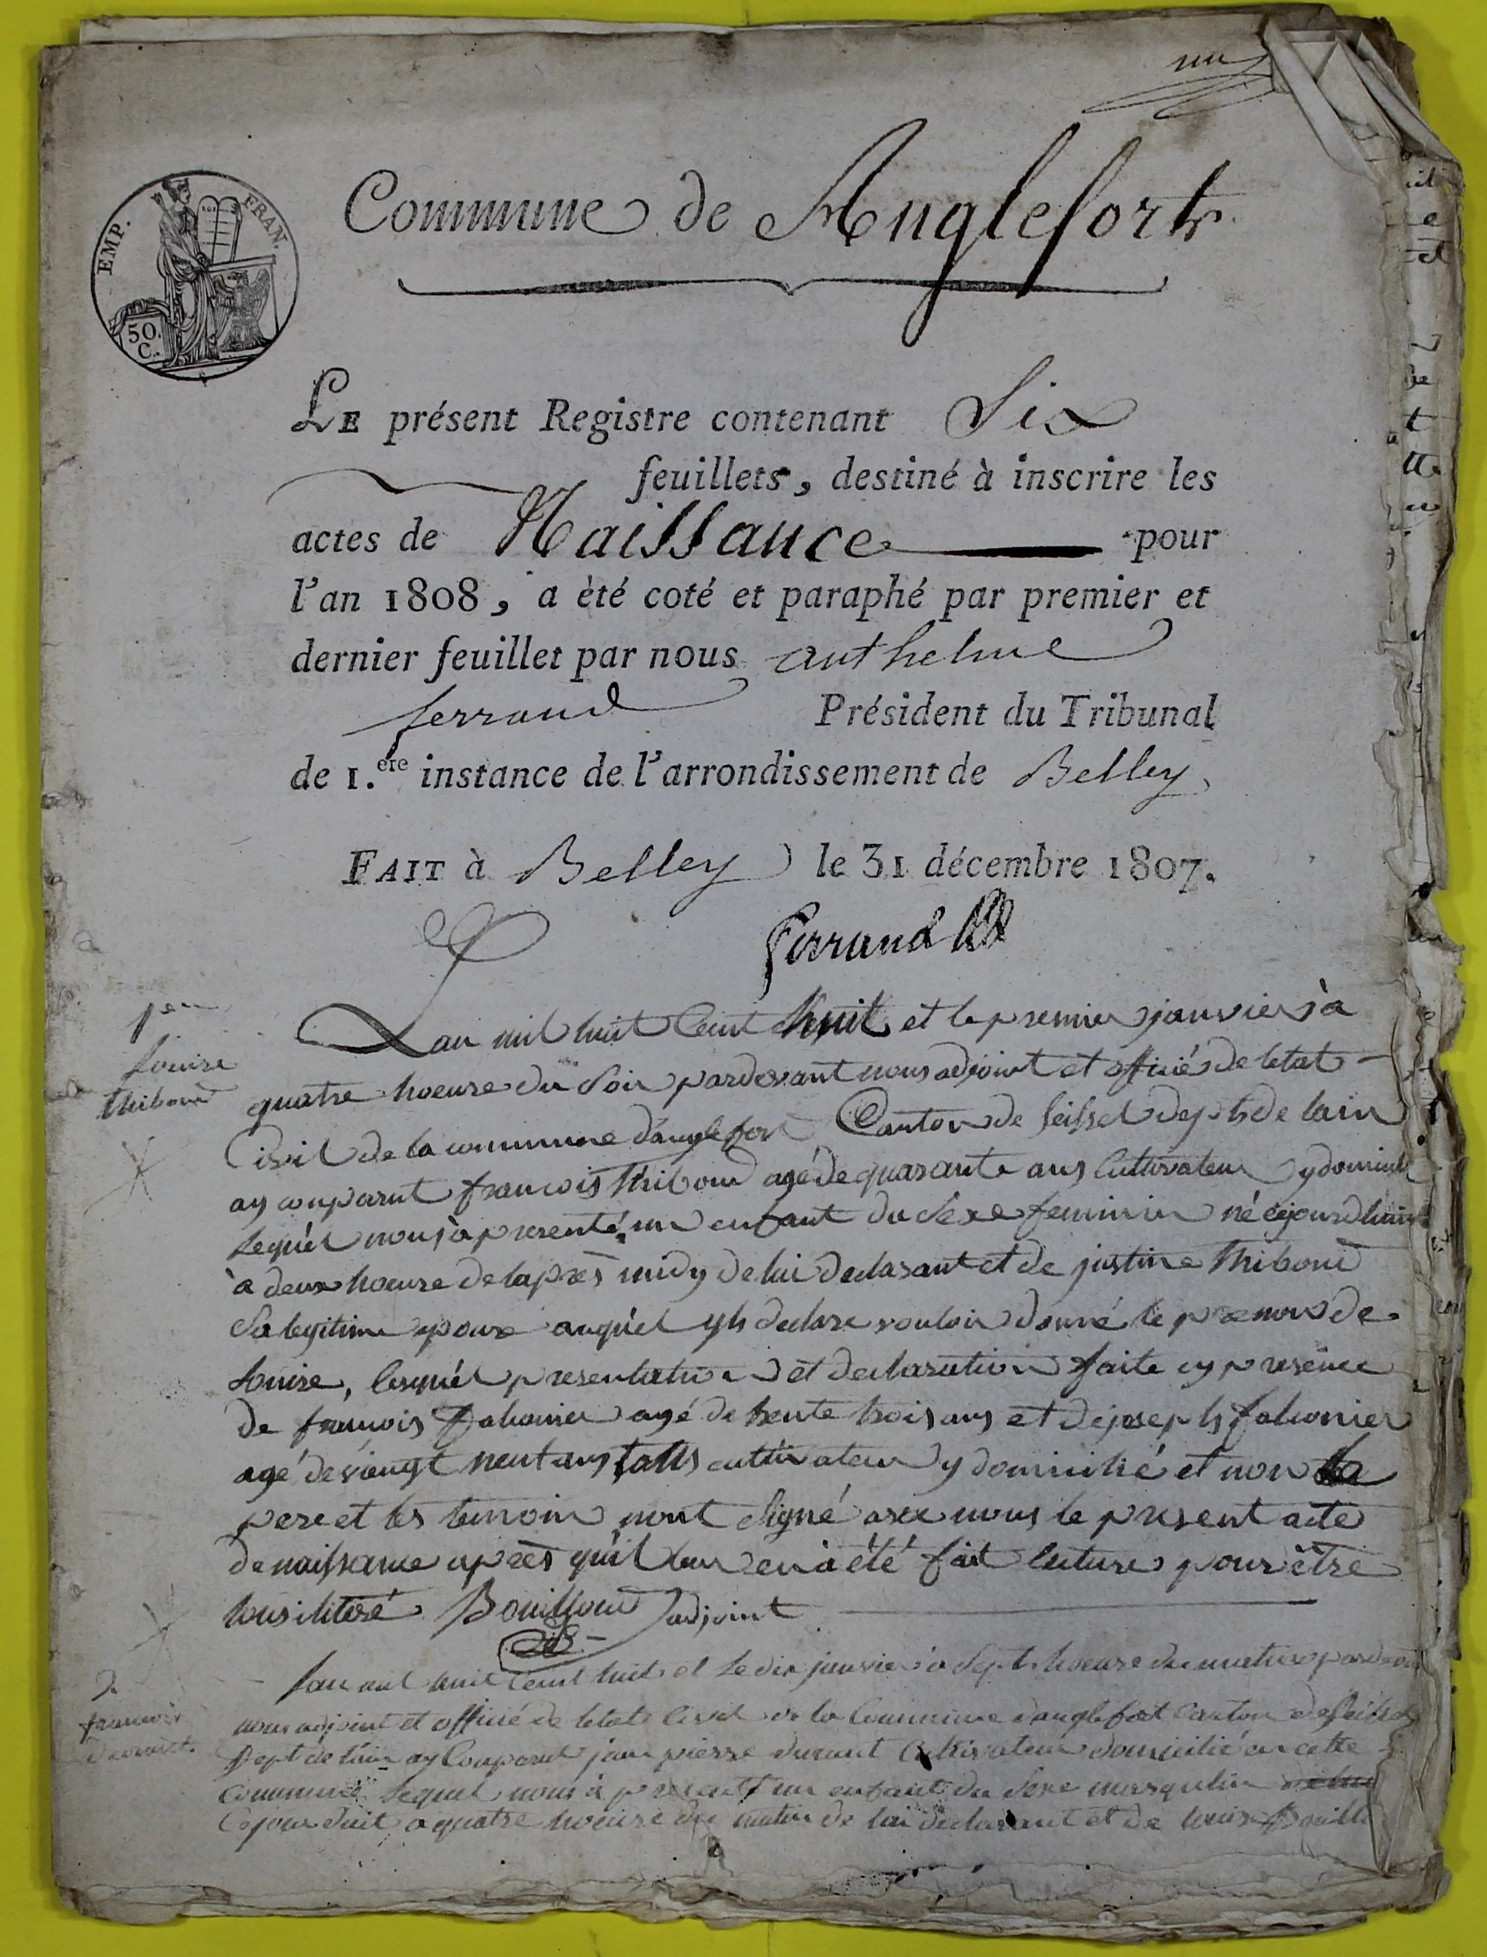 un
EMP. FRAN.
50.
C.
Commune de Anglefort
LE présent Registre contenant Six
feuillets, destiné à inscrire les
actes de Naissance pour
l'an 1808, a èté coté et paraphé par premier et
dernier feuillet par nous anthelme
ferrand Président du Tribunal
de 1.ere instance de l'arrondissement de Belley,
FAIT à Belley le 31 décembre 1807.
Ferrand
1er
Louise
thiboud
Lan mil huit Cent huit et le premier janvier à
quatre hoeure du Soir pardevant nous adjoint et officié de letat
Civil de la commune danglefort Canton de Seissel dept de lain
ay conparut francois thiboud agé de quarante ans Cultivateur y domicilié
lequel nous à presenté un enfant du Sexe feminin né cejourdhuit
à deux hoeure de laprès midy de lui declarant et de justine thiboud
Sa legitime epouse auquél yl declare vouloir donné le prenom de
Louise, lesquél presentation et declaration faite en presence
de francois falconier agé de trente trois ans et de joseph falconier
agé de vaingt neuf ans tous cultivateur y domicilié et non
pere et les temoin nont Signé avec nous le present acte
de naissance après quil leur en à été fait lecture pour être
tous iliteré Bouilloud adjoint
2
francois
durant
lan mil huit Cent huit et le dix janvier à Sept hoeure du matin pardevant
nous adjoint et officié de letat Civil de la Commune danglefort Canton de Seissel
Dept de lain ay Conparut jean pierre durant Cultivateur domicilié en cette
Commune lequel nous à presenté un enfant du Sexe masqulin
Cejourduit a quatre hoeure du matin de lui declarant et de louise Bouill